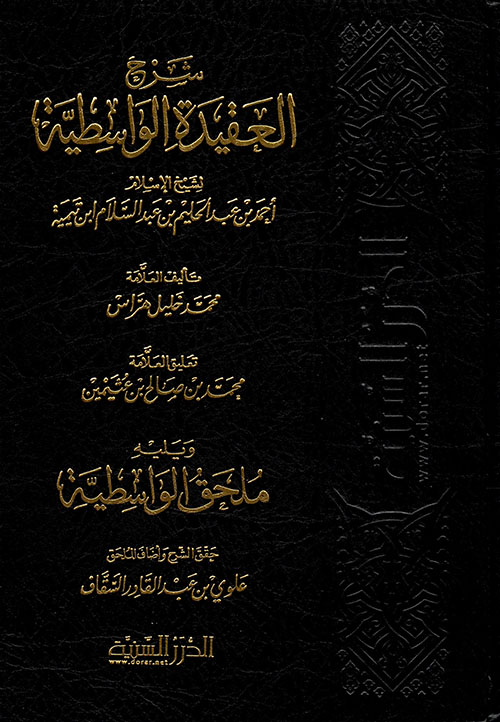 شرح
العقيدة الواسطية
لشيخ الإسلام
أحمد بن عبد الحليم بن عبد السلام ابن تيمية
تأليف العلامة
محمد خليل هراس
تعليق العلامة
محمد بن صالح بن عثيمين
ويليه
ملحق الواسطية
حقق الشرح وأضاف الملحق
علوي بن عبد القادر السقاف
الدرر السنية
www.dorar.net
الدرر السنية
www.dorar.net